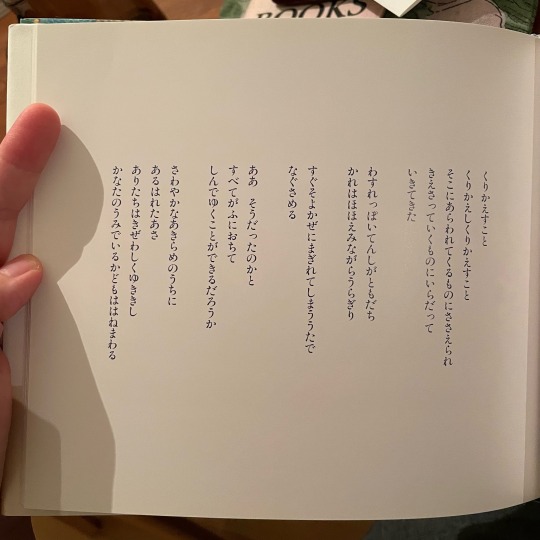 BOOKS
くりかえすこと
くりかえしくりかえすこと
そこにあらわれてくるものにささえられ
きえさっていくものにいらだって
いきてきた
わすれっぽいてんしがともだち
かれはほほえみながらうらぎり
すぐそよかぜにまぎれてしまううたで
なぐさめる
ああ　そうだったのかと
すべてがふにおちて
しんでゆくことができるだろうか
さわやかなあきらめのうちに
あるはれたあさ
ありたちはきぜわしくゆききし
かなたのうみでいるかどもははねまわる